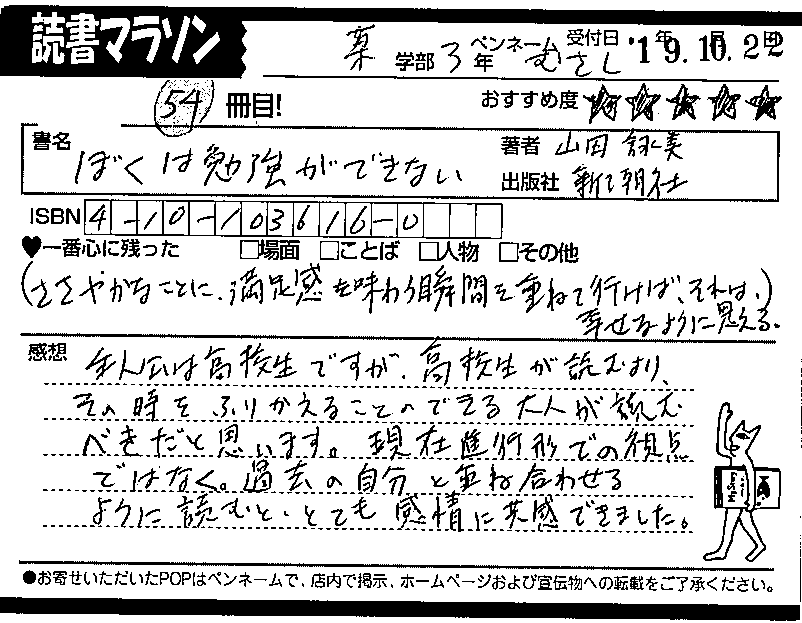 読書マラソン
薬 学部 3 年 ペンネーム むさし 受付日 '19.10.22
54 冊目! おすすめ度 ★★★★★
書名 ぼくは勉強ができない
著者 山田詠美
出版社 新潮社
ISBN 4-10-103616-0
♥一番心に残った □場面 □ことば □人物 □その他
(ささやかなことに、満足感を味わう瞬間を重ねて行けば、それは、)
幸せなように思える。
感想 主人公は高校生ですが、高校生が読むより、
その時をふりかえることのできる大人が読む
べきだと思います。現在進行形での視点
ではなく。過去の自分と重ね合わせる
ように読むと、とても感情に共感できました。
My Story
●お寄せいただいたPOPはペンネームで、店内で掲示、ホームページおよび宣伝物への転載をご了承ください。